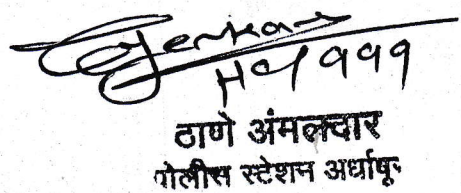 HC 1999
ठाणे अंमलदार
पोलीस स्टेशन अर्धापूर